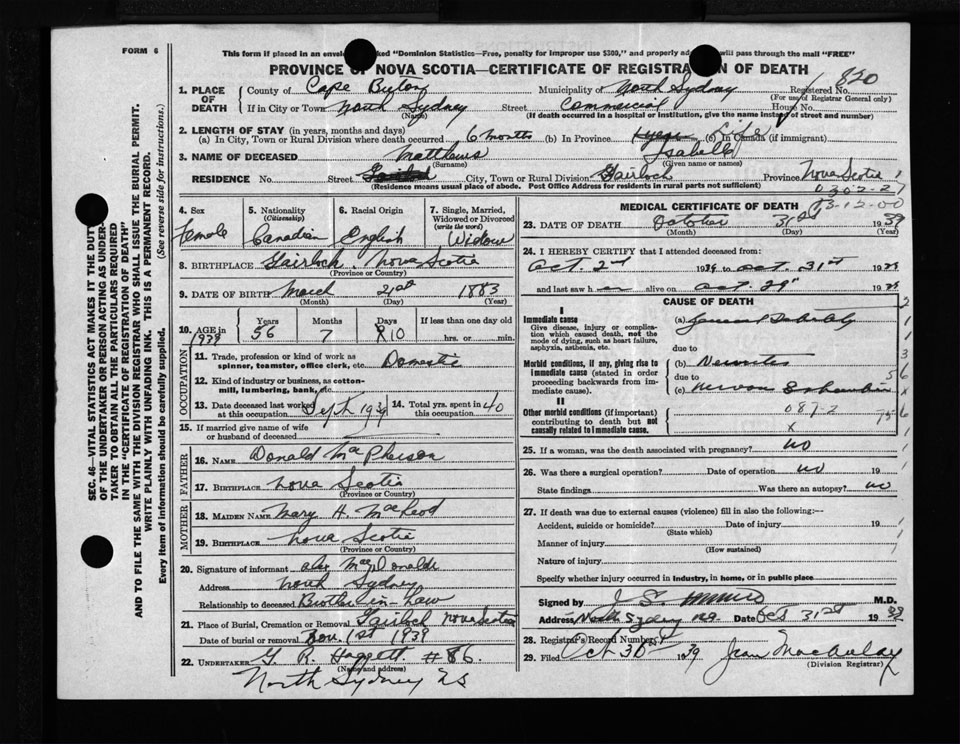 FORM 6
This form if placed in an envelope marked "Dominion Statistics—Free, penalty for improper use $300," and properly addressed will pass through the mail "FREE"
PROVINCE OF NOVA SCOTIA—CERTIFICATE OF REGISTRATION OF DEATH
820
1. PLACE OF DEATH
County of Cape Breton Municipality of North Sydney Registered No.
(For use of Registrar General only)
If in City or Town North Sydney Street Commercial House No.
(Name) (If death occurred in a hospital or institution, give name instead of street and number)
2. LENGTH OF STAY (in years, months and days)
(a) In City, Town or Rural Division where death occurred 6 months (b) In Province Life (c) In Canada (if immigrant)
3. NAME OF DECEASED Matthews Isabell
(Surname) (Given name or names)
RESIDENCE No. Street City, Town or Rural Division Gairloch Province Nova Scotia
(Residence means usual place of abode. Post Office Address for residents in rural parts not sufficient)
0302-21
03-12-00
4. Sex 5. Nationality (Citizenship) 6. Racial Origin 7. Single, Married, Widowed or Divorced (write the word)
Female Canadian English Widow
8. BIRTHPLACE Gairloch, Nova Scotia
(Province or Country)
9. DATE OF BIRTH March 21st 1883
(Month) (Day) (Year)
10. AGE in Years Months Days If less than one day old
1939 56 7 10 hrs. or min.
OCCUPATION
11. Trade, profession or kind of work as spinner, teamster, office clerk, etc. Domestic
12. Kind of industry or business, as cotton-mill, lumbering, bank, etc.
13. Date deceased last worked at this occupation Sept 1939 14. Total yrs. spent in this occupation 40
15. If married give name of wife or husband of deceased
FATHER
16. NAME Donald MacPherson
17. BIRTHPLACE Nova Scotia
(Province or Country)
MOTHER
18. MAIDEN NAME Mary H. MacLeod
19. BIRTHPLACE Nova Scotia
(Province or Country)
20. Signature of informant Alex MacDonald
Address North Sydney
Relationship to deceased Brother-in-law
21. Place of Burial, Cremation or Removal Gairloch Nova Scotia
Date of burial or removal Nov. 1st 1939
22. UNDERTAKER G. R. Haggett #86.
(Name and address)
North Sydney NS
MEDICAL CERTIFICATE OF DEATH
23. DATE OF DEATH October 31st 1939
(Month) (Day) (Year)
24. I HEREBY CERTIFY that I attended deceased from:
Oct. 2nd 1939 to Oct. 31st 1939
and last saw her alive on Oct. 29th 1939
CAUSE OF DEATH
I
Immediate cause
Give disease, injury or complication which caused death, not the mode of dying, such as heart failure, asphyxia, asthenia, etc.
(a) General Debility
due to
Morbid conditions, if any, giving rise to immediate cause (stated in order proceeding backwards from immediate cause).
(b) Neuritis
due to
(c) Nervous Exhaustion
II
Other morbid conditions (if important) contributing to death but not causally related to immediate cause.
087-2
x
25. If a woman, was the death associated with pregnancy? no
26. Was there a surgical operation? Date of operation no 19
State findings Was there an autopsy? no
27. If death was due to external causes (violence) fill in also the following:—
Accident, suicide or homicide? Date of injury 19
(State which)
Manner of injury
(How sustained)
Nature of injury
Specify whether injury occurred in industry, in home, or in public place
Signed by M.D.
Address North Sydney N.S. Date Oct 31st 1939
28. Registrar's Record Number
29. Filed Oct 30 1939 Jean MacAulay
(Division Registrar)
SEC. 46—VITAL STATISTICS ACT MAKES IT THE DUTY
OF THE UNDERTAKER OR PERSON ACTING AS UNDERTAKER TO OBTAIN ALL THE PARTICULARS REQUIRED
IN THE "CERTIFICATE OF REGISTRATION OF DEATH"
AND TO FILE THE SAME WITH THE DIVISION REGISTRAR WHO SHALL ISSUE THE BURIAL PERMIT.
WRITE PLAINLY WITH UNFADING INK. THIS IS A PERMANENT RECORD.
Every item of information should be carefully supplied. (See reverse side for instructions.)